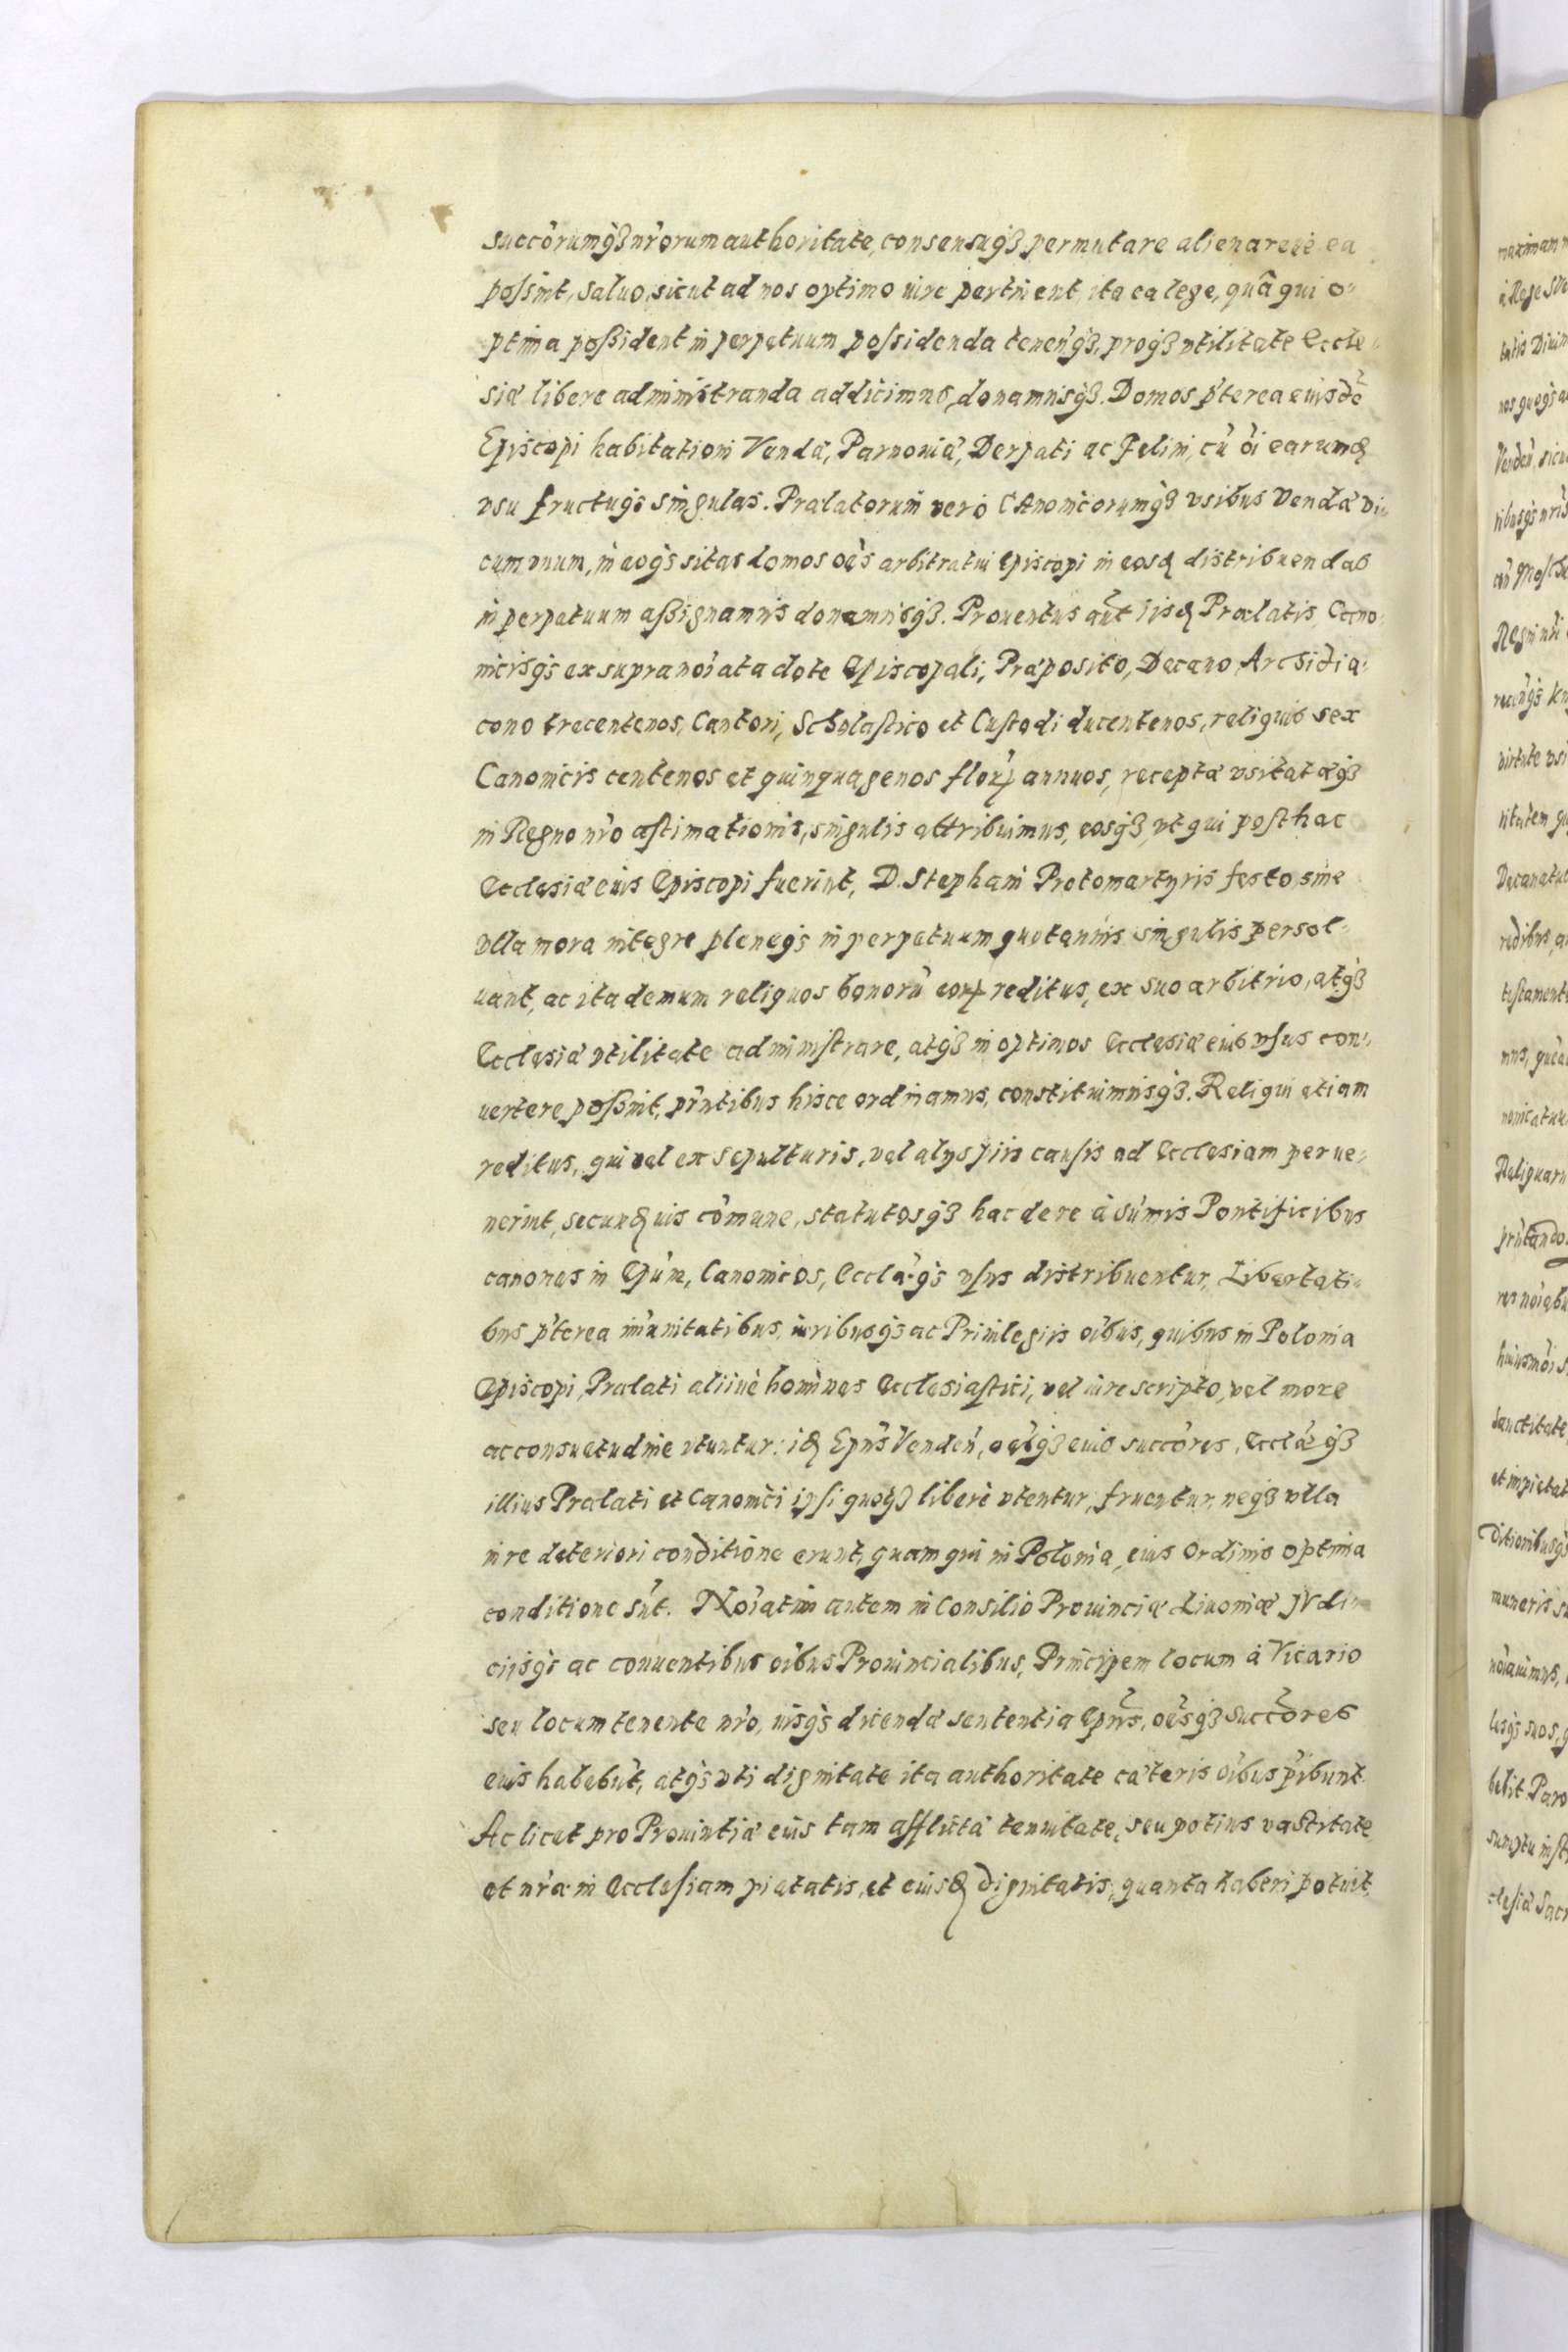 succôrumq́ȝ nr̃orum authoritate, consensuq́ȝ permutare alienareué ea
possint, saluo, sicut ad nos optimo iure pertinent, ita ea lege, quâ qui o-
ptima possident in perpetuum possidenda tenen̂q́ȝ, proq́ȝ vtilitate Eccle-
siæ libere administranda addicimus, donamusq́ȝ. Domos p̃terea eiusdẽ
Episcopi habitationi Vendæ, Parnouiæ, Derpati ac Felini, cũ õi earumꝗ
vsu fructuq́ȝ singulas. Prælatorum vero CAnonicorumq́ȝ vsibus Vendæ vi-
cum vnum, in eoq́ȝ sitas domos oẽs arbitratui Episcopi in eosꝗ distribuendas
in perpetuum assignamus donamusq́ȝ. Prouentus aũt iisꝗ Prælatis, Cano-
nicisq́ȝ ex supranoĩata dote Episcopali, Præposito, Decano, Archidia-
cono trecentenos, Cantori, Scholastico et Custodi ducentenos, reliquis sex
Canonicis centenos et quinquagenos florꝝ annuos, receptæ vsitatæq́ȝ
in Regno nr̃o æstimationis, singulis attribuimus, eosq́ȝ, vt qui posthac
Ecclesiæ eius Episcopi fuerint, D. Stephani Protomartyris festo sine
vlla mora integre pleneq́ȝ in perpetuum quotannis singulis persol-
uant, ac ita demum reliquos bonorũ eorꝝ reditus, ex suo arbitrio, atq́ȝ
Ecclesiæ vtilitate administrare, atq́ȝ in optimos Ecclesiæ eius vsus con-
uertere possint, pr̃ntibus hisce ordinamus, constituimusq́ȝ. Reliqui etiam
reditus, qui vel ex sepulturis, vel alijs piis causis ad Ecclesiam perue-
nerint, secunꝗ ius cõmune, statutosq́ȝ hac de re à sũmis Pontificibus
canones in Ep̃um, Canonicos, Ecclæ̃q́ȝ vsus distribuentur, Libertati-
bus p̃terea im̃unitatibus, iuribusq́ȝ ac Priuilegiis oĩbus, quibus in Polonia
Episcopi, Prælati aliiuè homines Ecclesiastici, vel iure scripto, vel more
ac consuetudine vtuntur: iꝗ Ep̃us Venden̂, oẽsq́ȝ eius succõres, Ecclæ̃q́ȝ
illius Prælati et Canonici ipsi quoq́ȝ liberè vtentur, fruentur, neq́ȝ vlla
in re deteriori conditione erunt, quam qui in Polonia, eius Ordinis optima
conditione sũt. Noĩatim autem in Consilio Prouinciæ Liuoniæ JVdi-
ciisq́ȝ ac conuentibus oĩbus Prouincialibus, Principem locum à Vicario
seu locumtenente nr̃o, iusq́ȝ dicendæ sententiæ Ep̃us, oẽsq́ȝ succõres
eius habebũt, atq́ȝ vti dignitate ita authoritate cæteris oĩbus p̃ibunt.
Ac licet pro Prouintiæ eius tam afflictæ tenuitate, seu potius vastitate
et nr̃a in Ecclesiam pietatis, et eiusꝗ dignitatis, quanta haberi potuit